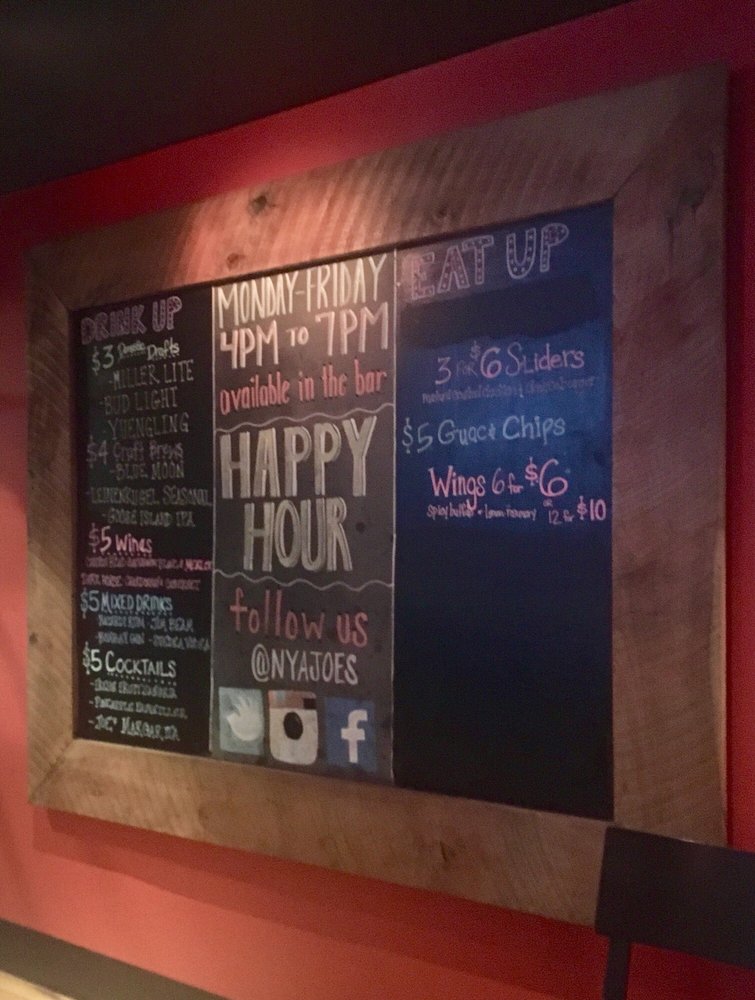 DRINK UP
$3 Domestic Drafts
-MILLER LITE
-BUD LIGHT
YUENGLING
$4 Craft Brews
-BLUE MOON
-LEINENKUGEL SEASONAL
-GOOSE ISLAND IPA
$5 Wines
$5 MIXED DRINKS
- JIM BEAM
$5 COCKTAILS
- JOE'S MARGARITA
MONDAY-FRIDAY
4PM TO 7PM
available in the bar
HAPPY
HOUR
follow us
@NYAJOES
f
EAT UP
3 FOR $6 SLiders
$5 Guac & Chips
Wings 6 for $6
Spicy buffalo or Lemon rosemary OR 12 for $10